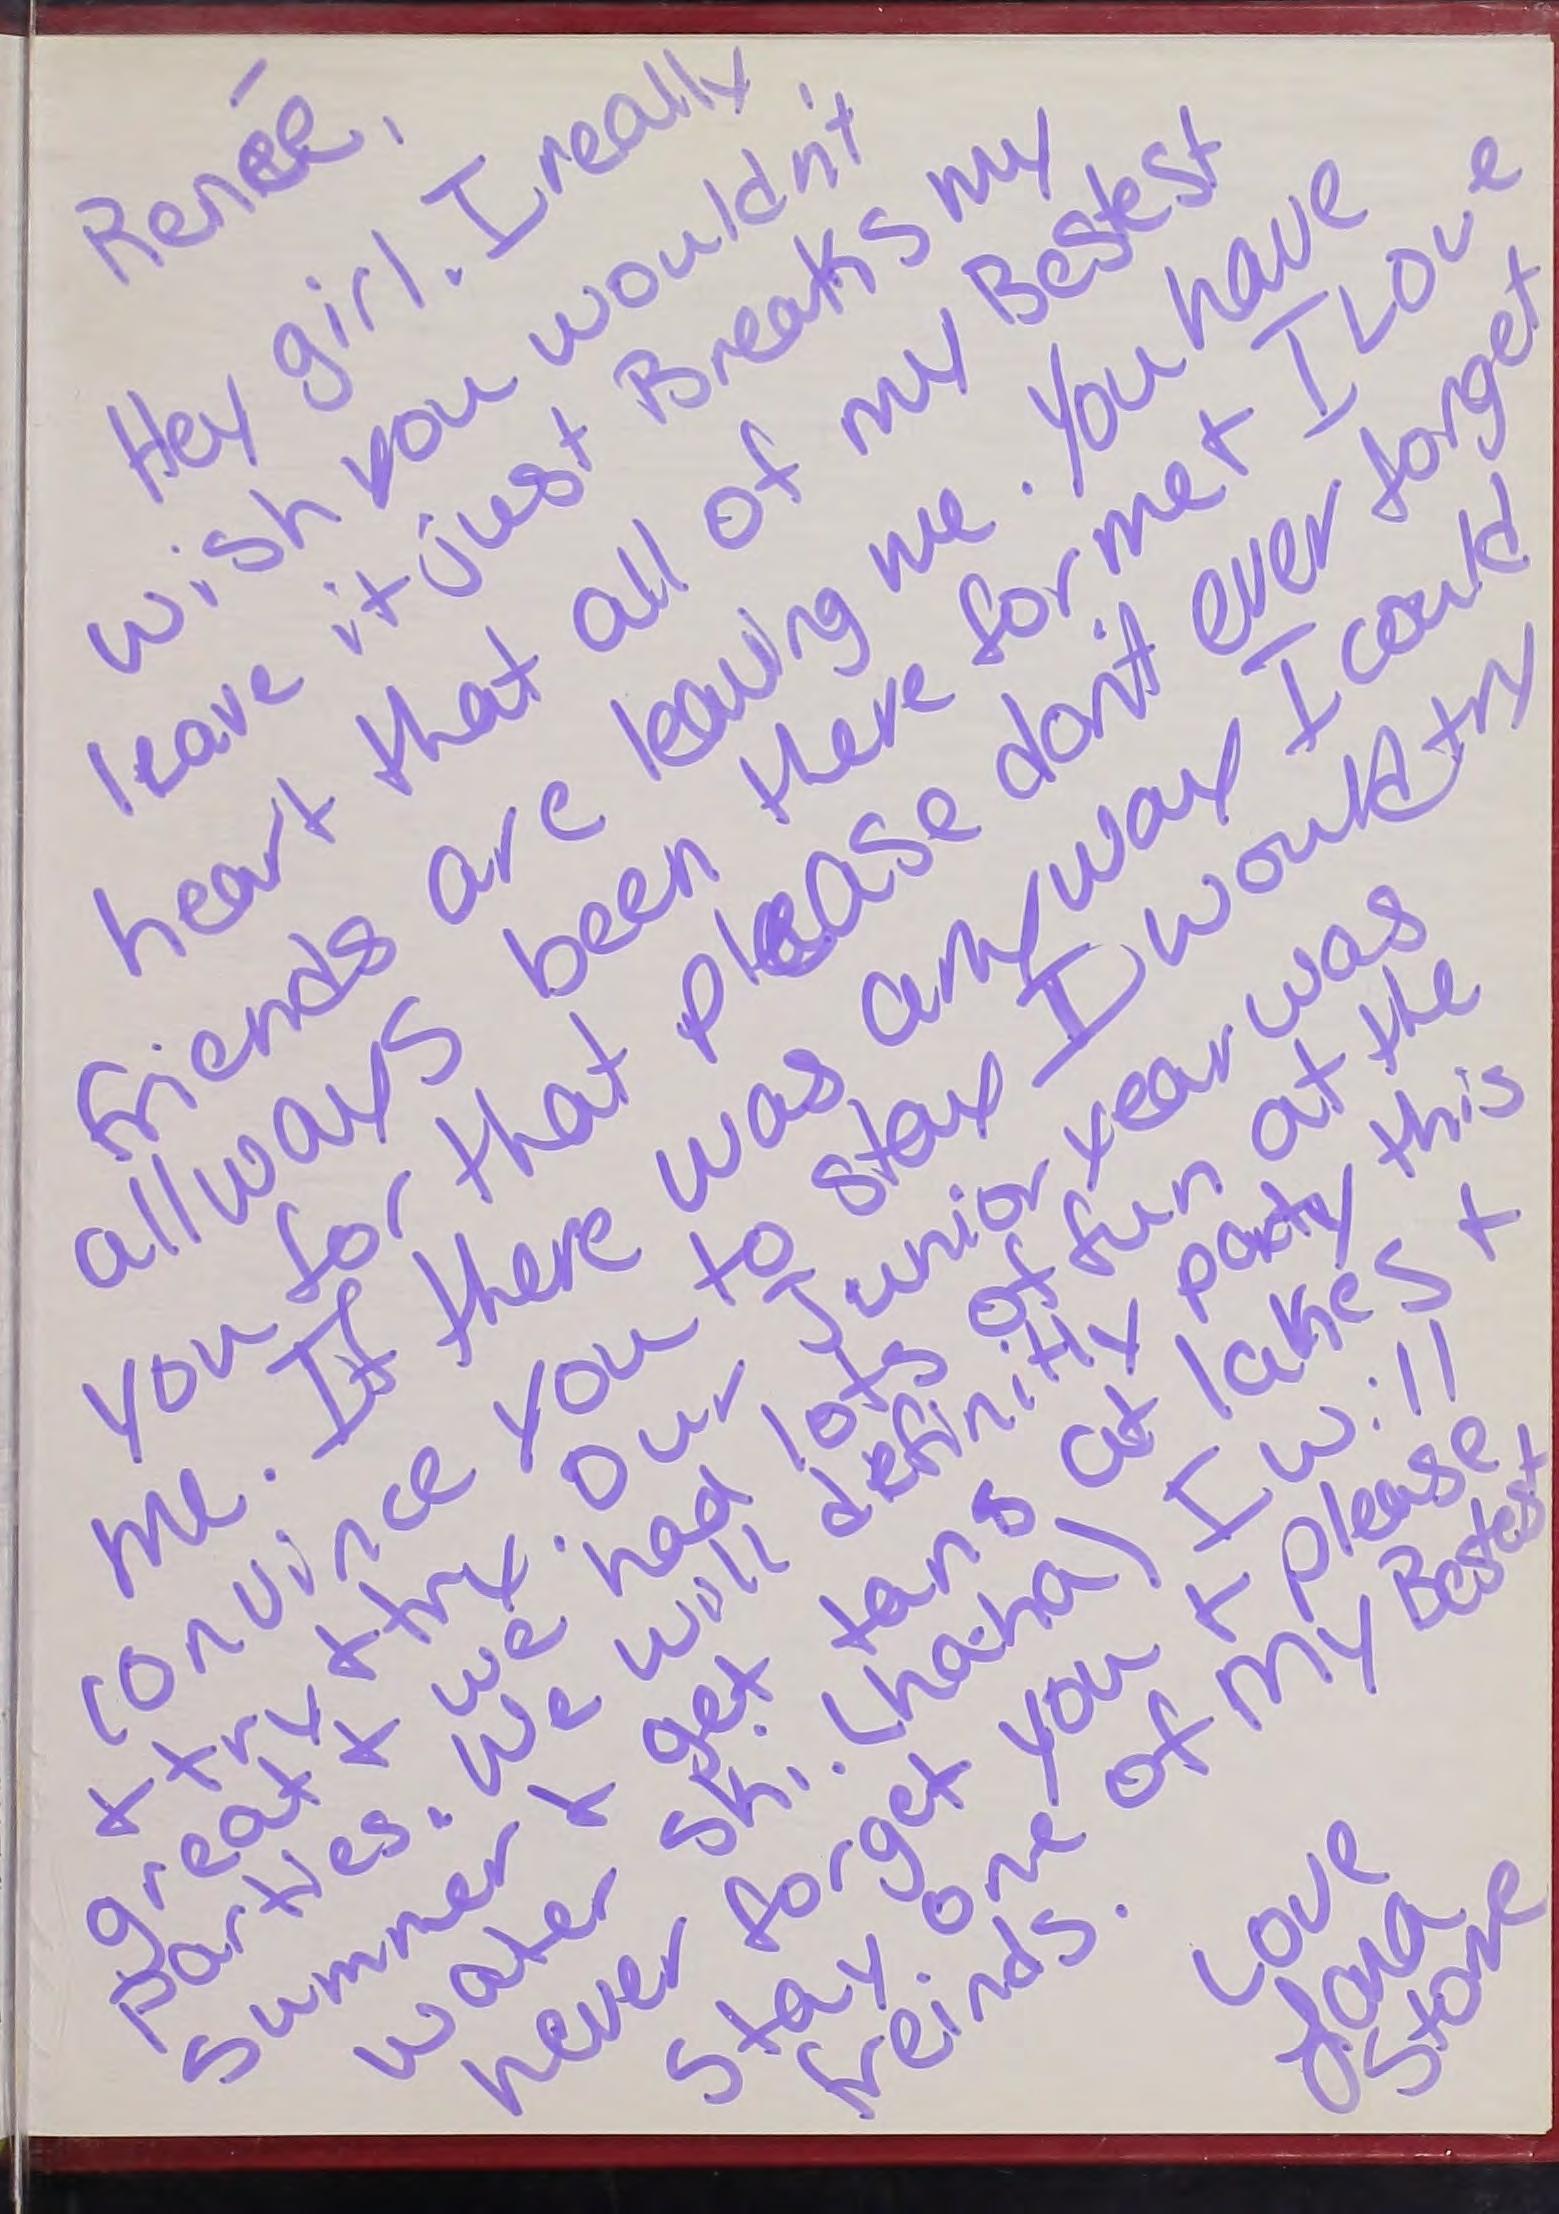 Reneé,
Hey girl. I really
wish you wouldn't
leave it just Breaks my
heart that all of my Bestest
friends are leaving me. You have
allways been there for me + I Love
you for that please don't ever forget
me. If there was any way I could
convince you to stay I would try
+ try + try. Our Junior year was
great + we had lots of fun at the
parties. We will definitly party this
summer + get tans at lakes +
water ski. (haha) I will
never forget you + please
stay one of my Bestest
freinds.
Love
Yana
Stone